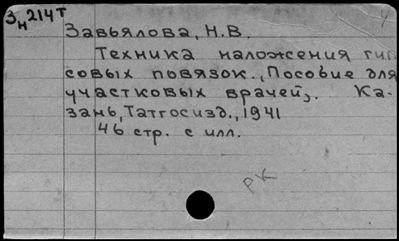 Зн214т
Завьялова, Н.В.
Техника наложения гип
совых повязок., Пособие для
участковых врачей,. Ка-
зань, Татгосизд., 1941
46 стр. с илл.
РК